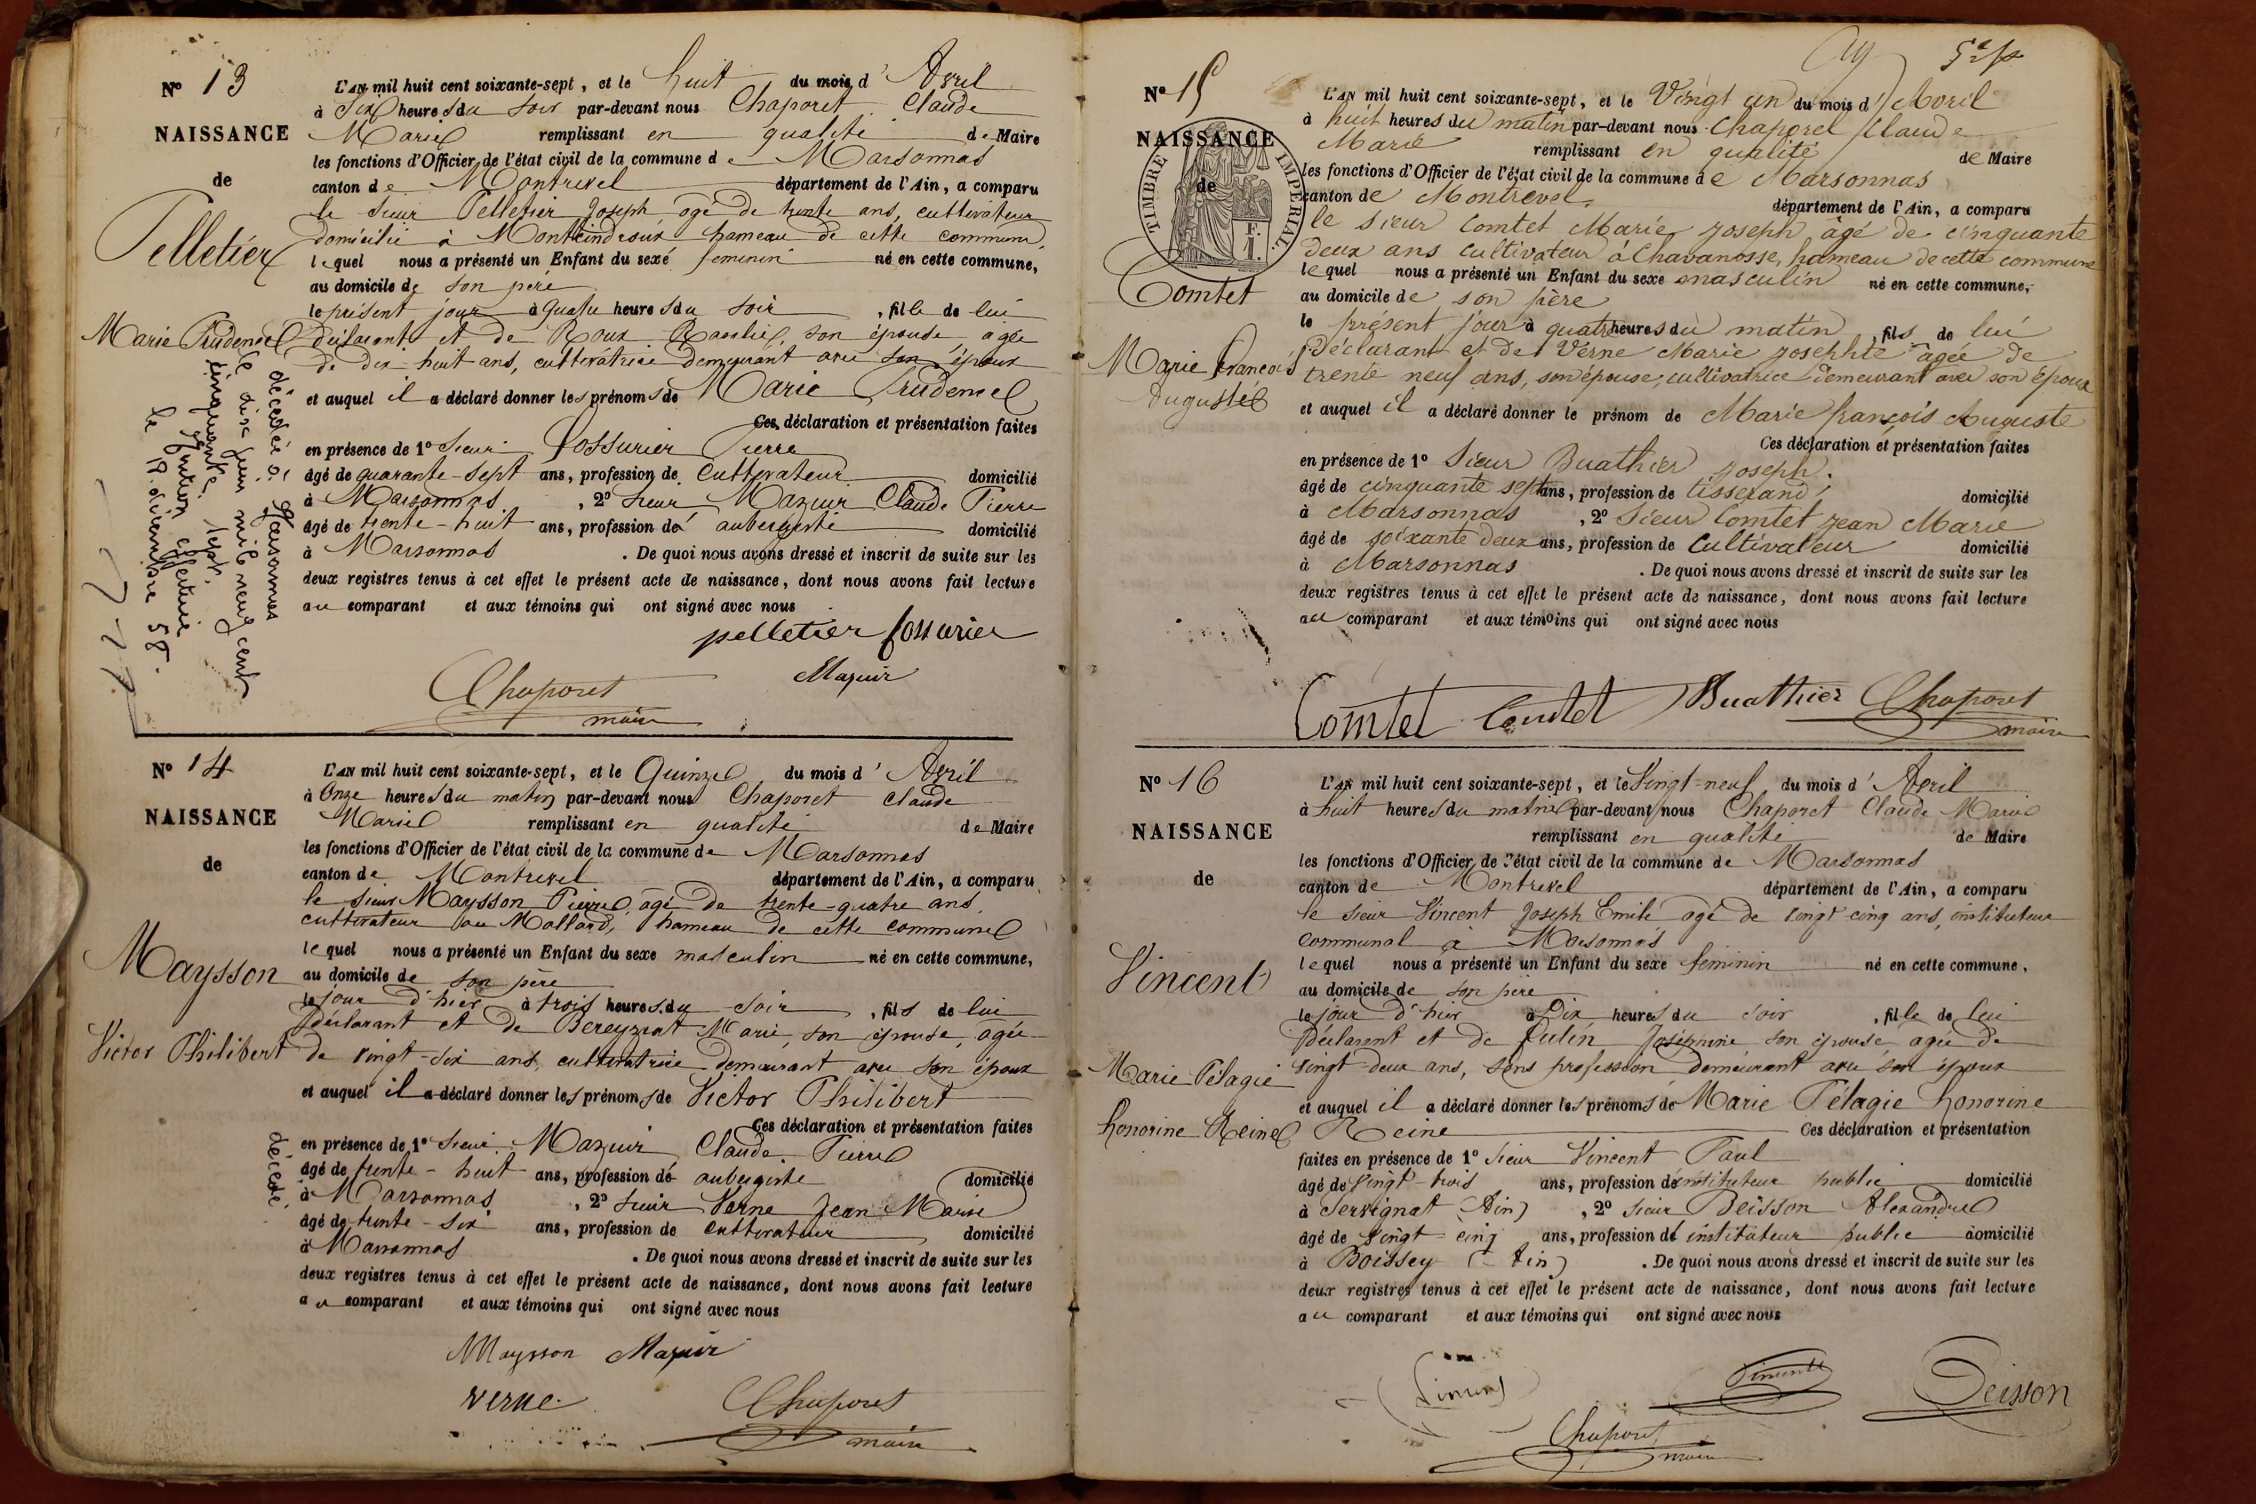 N° 13
NAISSANCE
de
Pelletier
Marie Prudence
L'AN mil huit cent soixante-sept, et le huit du mois d' Avril
à Six heures du soir par-devant nous Chaporet Claude
Marie remplissant en qualité de Maire
les fonctions d'Officier de l'état civil de la commune de Marsonnas
canton de Montrevel département de l'Ain, a comparu
le sieur Pelletier Joseph, âgé de trente ans, cultivateur
domicilié à hameau de cette commune,
lequel nous a présenté un Enfant du sexe féminin né en cette commune,
au domicile de son père
le présent jour à quatre heures du soir, fille de lui
déclarant et de Roux son épouse, agée
de dix-huit ans, cultivatrice demeurant avec son époux
et auquel il a déclaré donner les prénoms de Marie Prudence
Ces déclaration et présentation faites
en présence de 1° Sieur Fossurier Pierre
âgé de quarante-sept ans, profession de Cultivateur domicilié
à Marsonnas, 2° Sieur Mazuir Claude Pierre
âgé de trente-huit ans, profession de aubergiste domicilié
à Marsonnas. De quoi nous avons dressé et inscrit de suite sur les
deux registres tenus à cet effet le présent acte de naissance, dont nous avons fait lecture
au comparant et aux témoins qui ont signé avec nous
pelletier fossurier
Mazuir
Chaporet
maire
décédée à Marsonnas
le dix juin mil neuf cent
cinquante sept.
le 18 décembre 58.
N° 14
NAISSANCE
de
Maysson
Victor Philibert
décédé.
L'AN mil huit cent soixante-sept, et le Quinze du mois d' Avril
à Onze heures du matin par-devant nous Chaporet Claude
Marie remplissant en qualité de Maire
les fonctions d'Officier de l'état civil de la commune de Marsonnas
canton de Montrevel département de l'Ain, a comparu
le sieur Maysson Pierre, âgé de trente-quatre ans,
cultivateur au Mollard, hameau de cette commune
lequel nous a présenté un Enfant du sexe masculin né en cette commune,
au domicile de son père
le jour d'hier à trois heures du soir, fils de lui
déclarant et de Bereyziat Marie, son épouse, agée
de vingt-six ans, cultivatrice demeurant avec son époux
et auquel il a déclaré donner les prénoms de Victor Philibert
Ces déclaration et présentation faites
en présence de 1° Sieur Mazuir Claude Pierre
âgé de trente-huit ans, profession de aubergiste domicilié
à Marsonnas, 2° Sieur Verne Jean Marie
âgé de trente-six ans, profession de cultivateur domicilié
à Marsonnas. De quoi nous avons dressé et inscrit de suite sur les
deux registres tenus à cet effet le présent acte de naissance, dont nous avons fait lecture
au comparant et aux témoins qui ont signé avec nous
Maysson Mazuir
verne
Chaporet
maire
N° 15
NAISSANCE
de
TIMBRE IMPÉRIAL.
Comtet
Marie François
Auguste
L'AN mil huit cent soixante-sept, et le Vingt un du mois d' Avril
à huit heures du matin par-devant nous Chaporet Claude
Marie remplissant en qualité de Maire
les fonctions d'Officier de l'état civil de la commune de Marsonnas
canton de Montrevel, département de l'Ain, a comparu
le sieur Comtet Marie Joseph, âgé de cinquante
deux ans cultivateur à Chavanosse, hameau de cette commune
lequel nous a présenté un Enfant du sexe masculin né en cette commune,
au domicile de son père
le présent jour à quatre heures du matin, fils de lui
Déclarant et de Verne Marie Josephte agée de
trente neuf ans, son épouse, cultivatrice demeurant avec son époux
et auquel il a déclaré donner le prénom de Marie françois Auguste
Ces déclaration et présentation faites
en présence de 1° Sieur Buathier Joseph,
âgé de cinquante sept ans, profession de tisserand, domicilié
à Marsonnas, 2° Sieur Comtet Jean Marie
âgé de soixante deux ans, profession de Cultivateur domicilié
à Marsonnas. De quoi nous avons dressé et inscrit de suite sur les
deux registres tenus à cet effet le présent acte de naissance, dont nous avons fait lecture
au comparant et aux témoins qui ont signé avec nous
Comtet Comtet Buathier Chaporet
maire
N° 16
NAISSANCE
de
Vincent
Marie Pélagie
honorine Reine
L'AN mil huit cent soixante-sept, et le Vingt-neuf du mois d' Avril
à huit heures du matin par-devant nous Chaporet Claude Marie
remplissant en qualité de Maire
les fonctions d'Officier de l'état civil de la commune de Marsonnas
canton de Montrevel département de l'Ain, a comparu
le sieur Vincent Joseph Emile agé de vingt-cinq ans, instituteur
communal à Marsonnas
lequel nous a présenté un Enfant du sexe féminin né en cette commune,
au domicile de son père
le jour d'hier à Dix heures du soir, fille de lui
Déclarant et de Joséphine son épouse agée de
vingt-deux ans, sans profession, demeurant avec son époux
et auquel il a déclaré donner les prénoms de Marie Pélagie honorine
Reine Ces déclaration et présentation
faites en présence de 1° Sieur Vincent Paul
âgé de vingt-trois ans, profession de instituteur public domicilié
à Servignat (Ain), 2° Sieur Deisson Alexandre
âgé de vingt-cinq ans, profession de instituteur public domicilié
à Boissey (Ain). De quoi nous avons dressé et inscrit de suite sur les
deux registres tenus à cet effet le présent acte de naissance, dont nous avons fait lecture
au comparant et aux témoins qui ont signé avec nous
Vincent Deisson
Chaporet
maire